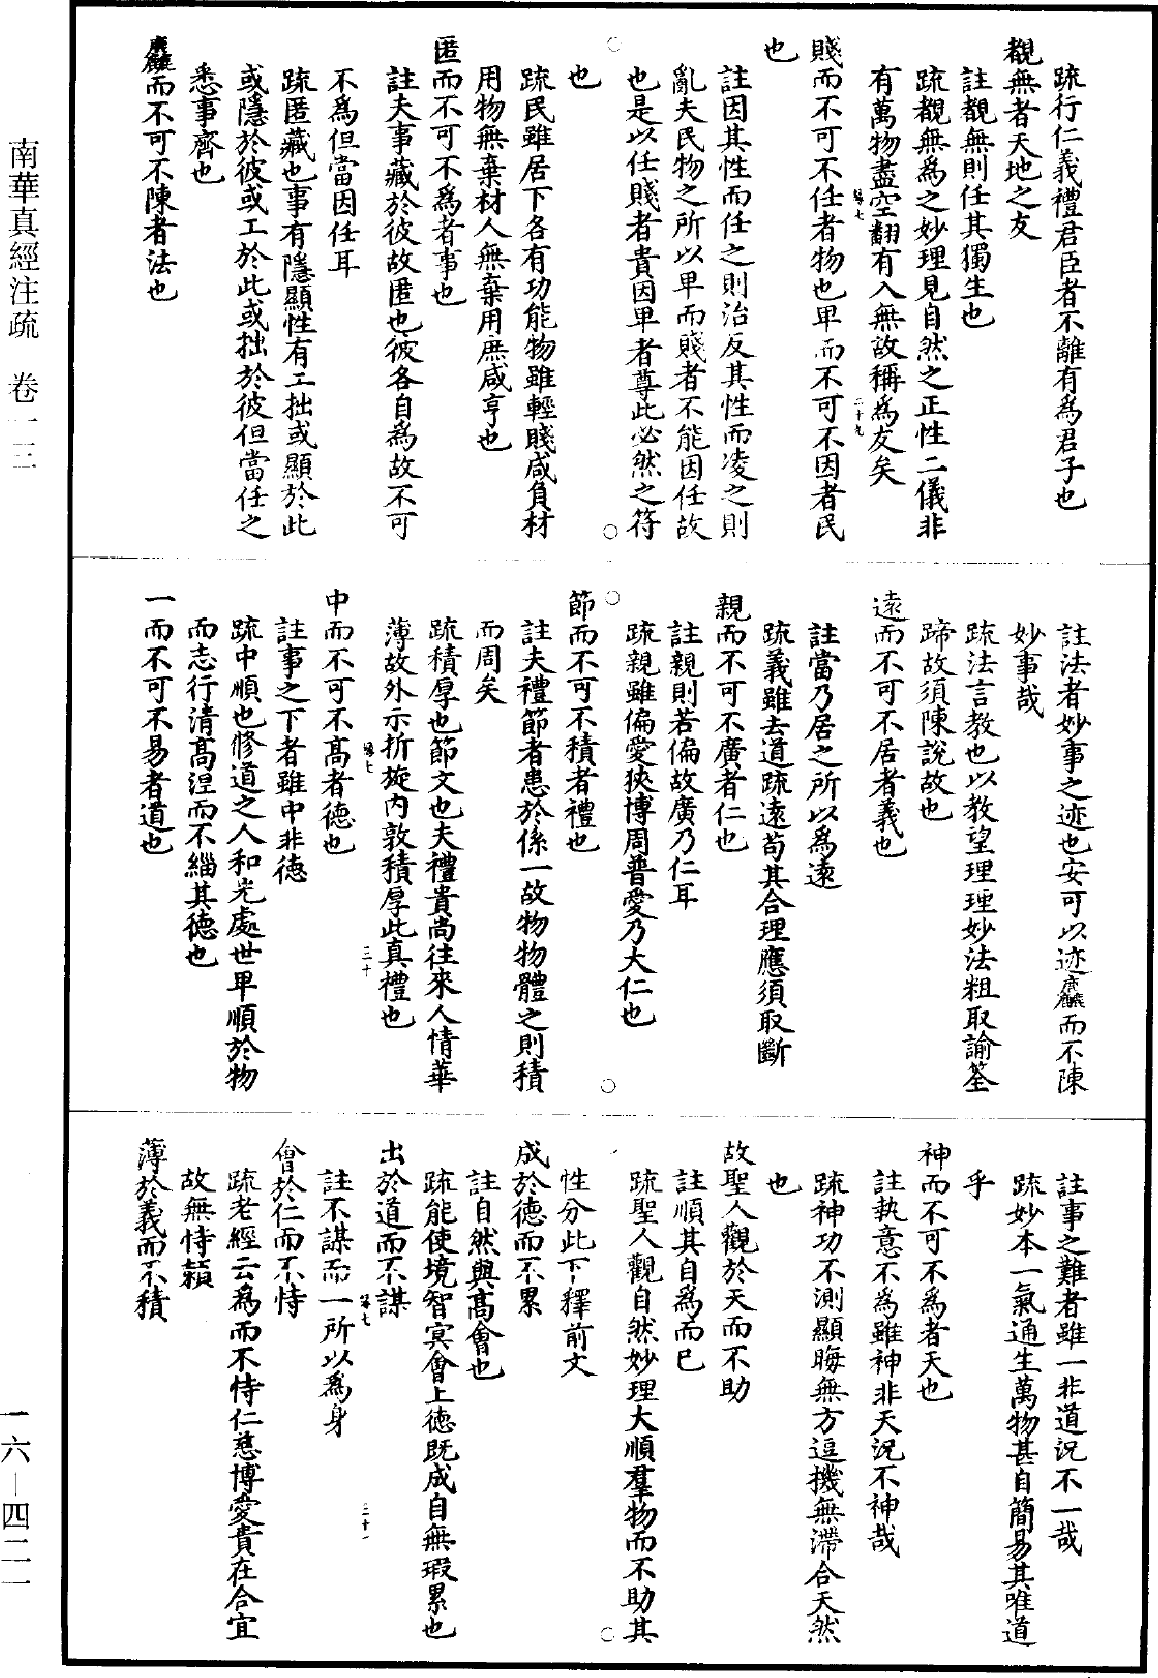 疏行仁義禮君臣者不離有為君子也
覩無者天地之友
註覩無則任其獨生也
疏覩無為之妙理見自然之正性二儀非
有萬物盡空翻有入無故稱為友矣
賤而不可不任者物也卑而不可不因者民
也
註因其性而任之則治反其性而凌之則
亂夫民物之所以卑而賤者不能因任故
也是以任賤者貴因卑者尊此必然之符
也
疏民雖居下各有功能物雖輕賤咸負材
用物無棄材人無棄用庶咸亨也
匿而不可不為者事也
註夫事藏於彼故匿也彼各自為故不可
不為但當因任耳
疏匿藏也事有隱顯性有工拙或顯於此
或隱於彼或工於此或拙於彼但當任之
悉事齊也
麤而不可不陳者法也
註法者妙事之迹也安可以迹麤而不陳
妙事哉
疏法言教也以教望理理妙法粗取諭筌
蹄故須陳說故也
遠而不可不居者義也
註當乃居之所以為遠
疏義雖去道疏遠苟其合理應須取斷
親而不可不廣者仁也
註親則若偏故廣乃仁耳
疏親雖偏愛狹博周普愛乃大仁也
節而不可不積者禮也
註夫禮節者患於係一故物物體之則積
而周矣
疏積厚也節文也夫禮貴尚往來人情華
薄故外示折旋內敦積厚此真禮也
中而不可不高者德也
註事之下者雖中非德
疏中順也修道之人和光處世卑順於物
而志行清高涅而不緇其德也
一而不可不易者道也
註事之難者雖一非道況不一哉
疏妙本一氣通生萬物甚自簡易其唯道
乎
神而不可不為者天也
註執意不為雖神非天況不神哉
疏神功不測顯晦無方逗機無滯合天然
也
故聖人觀於天而不助
註順其自為而已
疏聖人觀自然妙理大順羣物而不助其
性分此下釋前文
成於德而不累
註自然與高會也
疏能使境智冥會上德既成自無瑕累也
出於道而不謀
註不謀而一所以為身
會於仁而不恃
疏老經云為而不恃仁慈博愛貴在合宜
故無恃賴
薄於義而不積
南華真經注疏 卷一三
一六—四二一